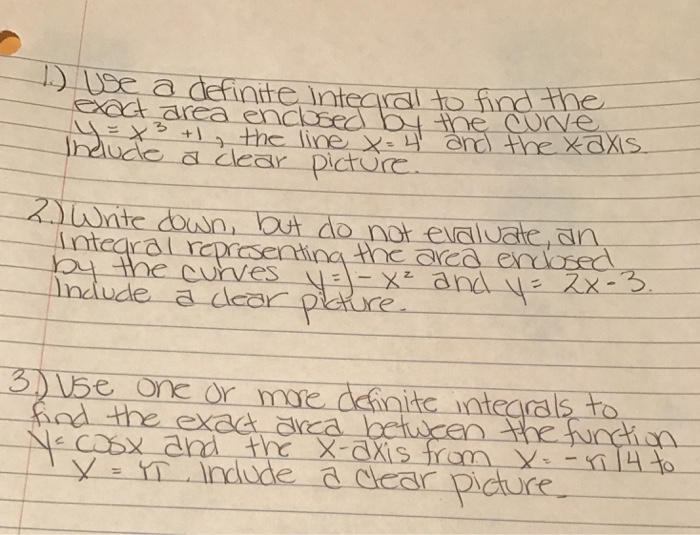 1.) Use a definite integral to find the
exact area enclosed by the curve
y = x³ +1, the line x = 4 and the x-axis.
Include a clear picture.
2.) Write down, but do not evaluate, an
integral representing the area enclosed
by the curves y=1-x² and y= 2x-3.
Include a clear picture.
3.) Use one or more definite integrals to
find the exact area between the function
y= cosx and the x-axis from x= -π/4 to
x = π. Include a clear picture.